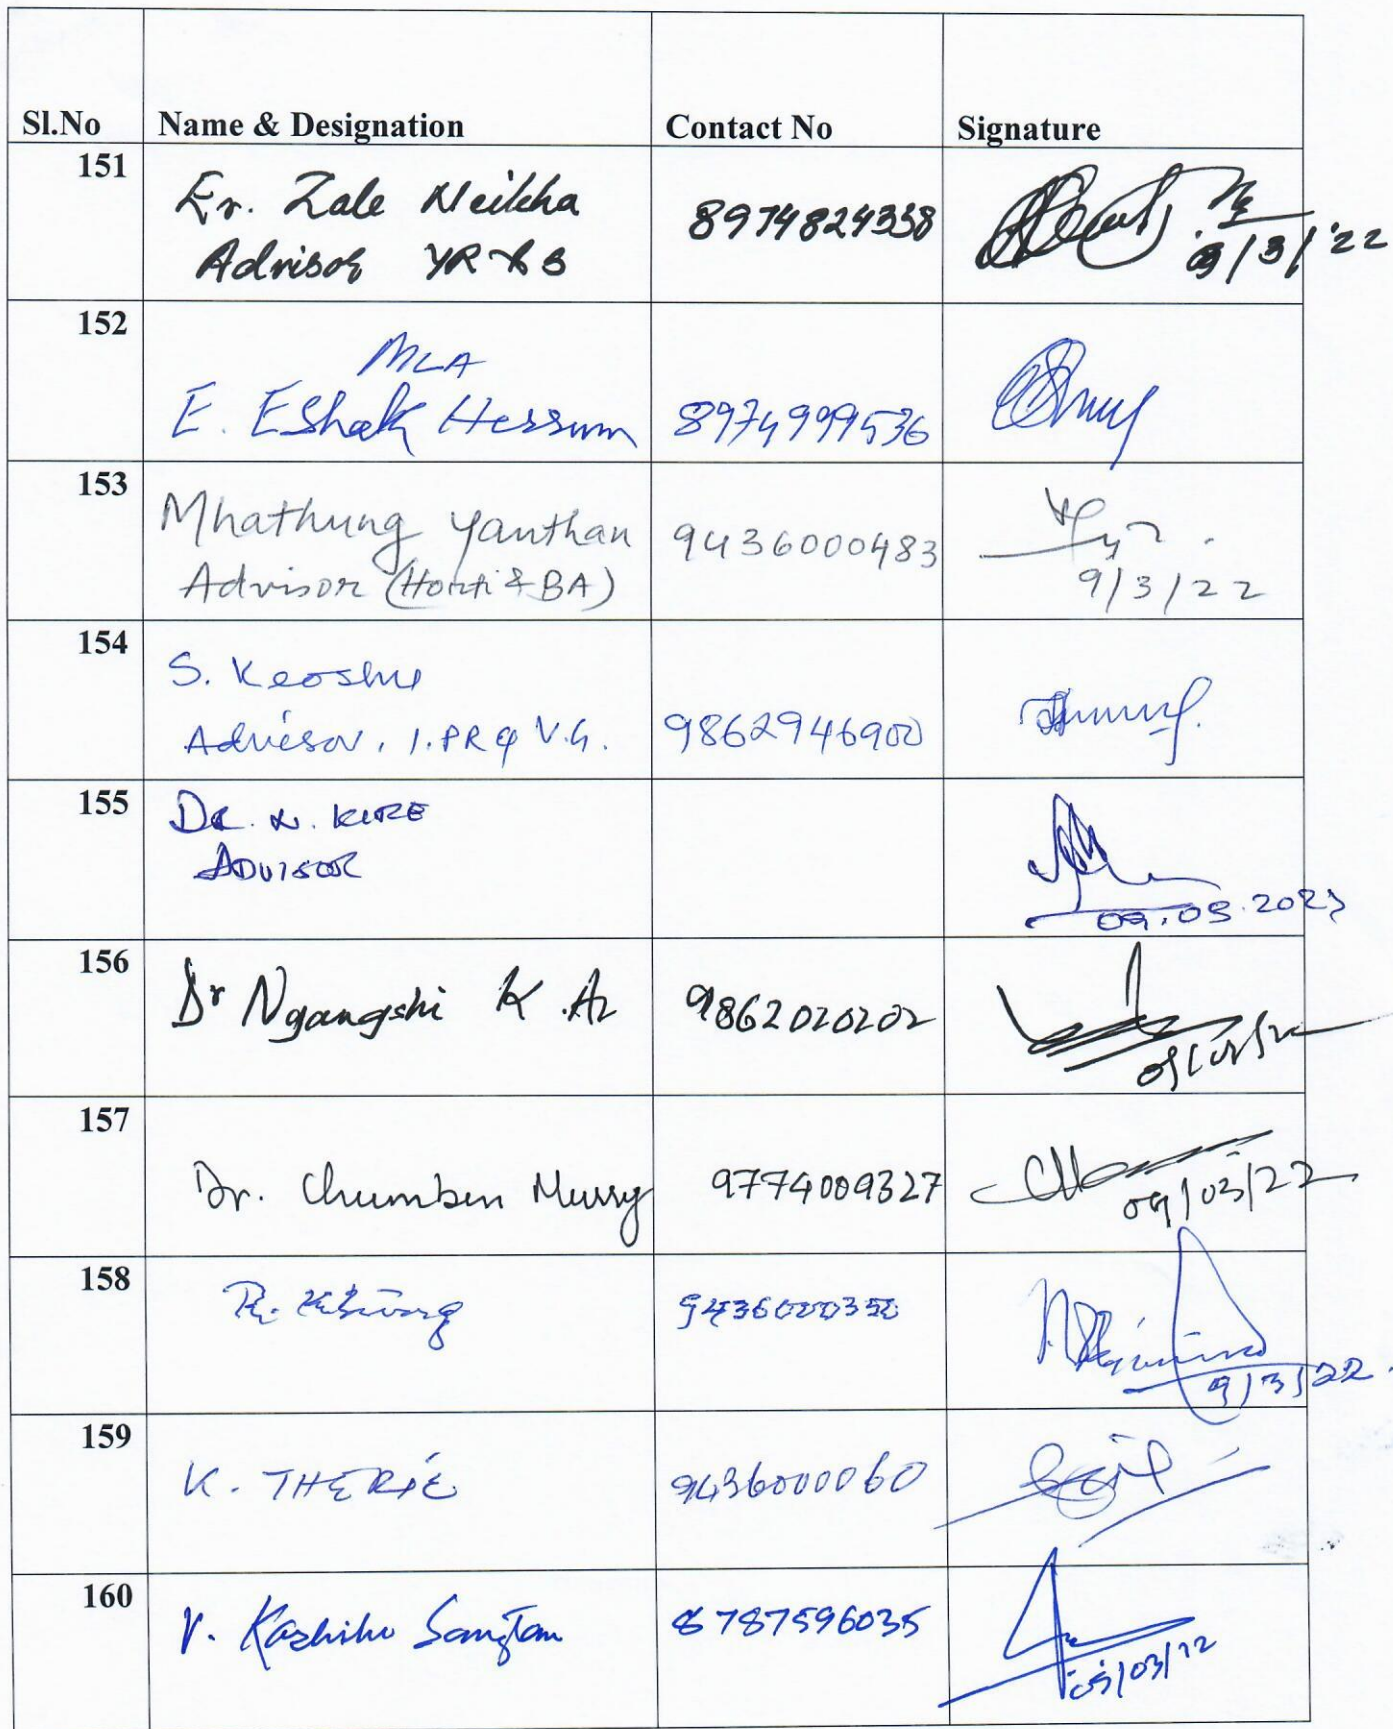 Sl.No Name & Designation Contact No Signature
151 Er. Zale Neikha 8974824338
Advisor YR & S 9/3/'22
152 MLA
E. EShak Hessum 8974999536
153 Mhathung Yanthan 9436000483
Advisor (Horti & BA) 9/3/22
154 S. Keoshu
Advisor, I.PR & V.G. 9862946900
155 DR. N. KIRE
ADVISOR
156 Dr Ngangshi K. Ao 9862020202
157 Dr. Chumben Murry 9774009327 09/03/22
158 R. Khing 9436000350
9/3/22.
159 K. THERIE 9436000060
160 V. Kashiho Sangtam 8787596035
03/22